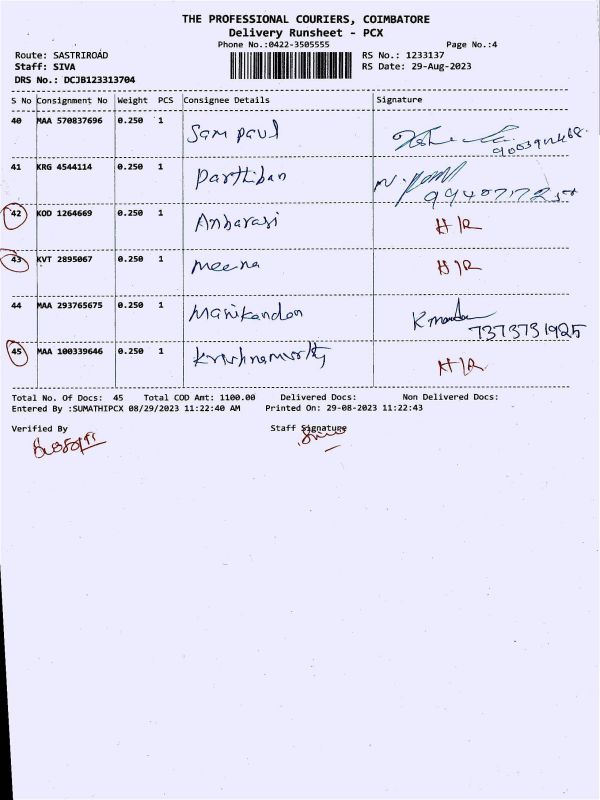 THE PROFESSIONAL COURIERS, COIMBATORE
Delivery Runsheet - PCX
Phone No.:0422-3505555 Page No.:4
Route: SASTRIROAD RS No.: 1233137
Staff: SIVA RS Date: 29-Aug-2023
DRS No.: DCJB123313704
S No Consignment No Weight PCS Consignee Details Signature
40 MAA 570837696 0.250 1 Sampaul
41 KRG 4544114 0.250 1 Parthiban
42 KOD 1264669 0.250 1 Anbarasi H/R
43 KVT 2895067 0.250 1 meena H/R
44 MAA 293765675 0.250 1 Manikandan 7373731925
45 MAA 100339646 0.250 1 Krishnamurthy H/R
Total No. Of Docs: 45 Total COD Amt: 1100.00 Delivered Docs: Non Delivered Docs:
Entered By :SUMATHIPCX 08/29/2023 11:22:40 AM Printed On: 29-08-2023 11:22:43
Verified By Staff Signature